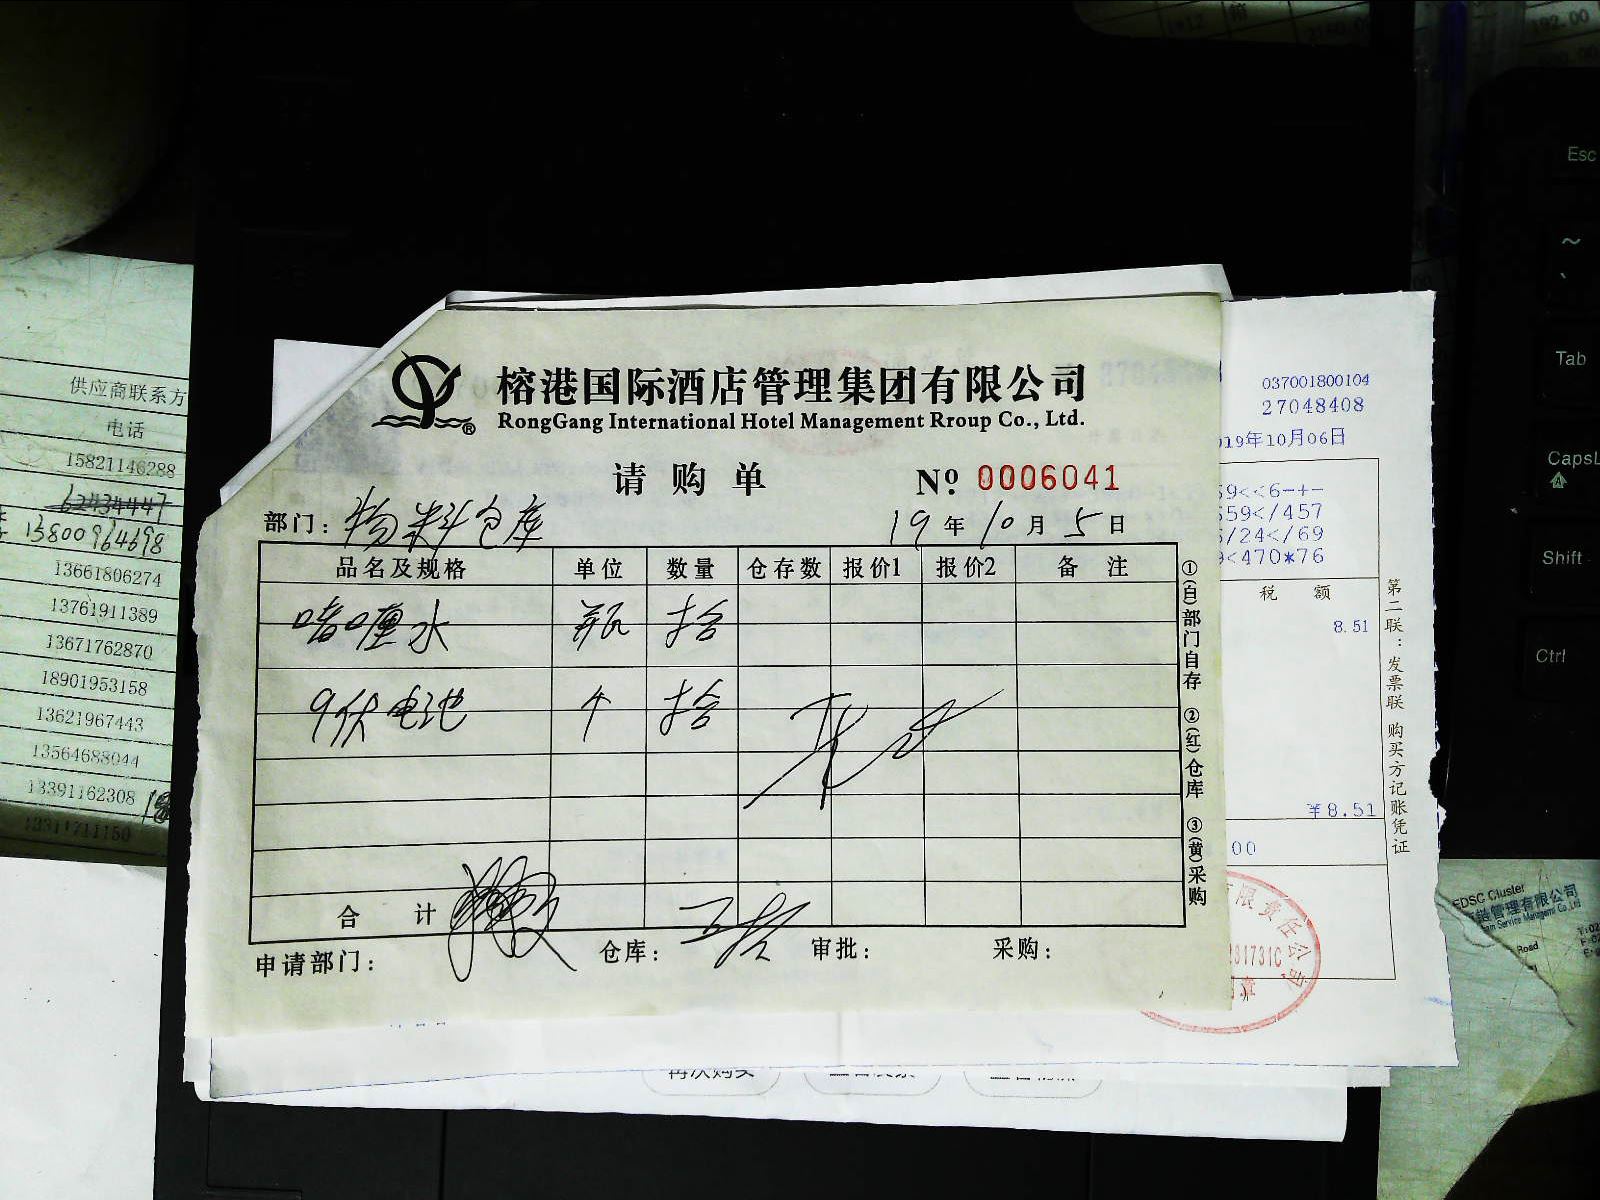 榕港国际酒店管理集团有限公司
RongGang International Hotel Management Rroup Co., Ltd.
请购单 Nº 0006041
部门: 物料仓库 19年10月5日
品名及规格 单位 数量 仓存数 报价1 报价2 备注
啫喱水 瓶 拾
9伏电池 个 拾
合计
申请部门: 仓库: 审批: 采购:
①(白)部门自存 ②(红)仓库 ③(黄)采购
供应商联系方
电话
15821146288
62434447
13800964698
13661806274
13761911389
13671762870
18901953158
13621967443
13564688044
13391162308
13311711150
037001800104
27048408
19年10月06日
59<<6-+-
559</457
/24</69
<470*76
税额
8.51
¥8.51
00
第二联:发票联 购买方记账凭证
限责任公司
231731C
章
再次购买
EDSC Cluster
链管理有限公司
Road
Esc
~
Tab
CapsL
Shift
Ctrl
192.00